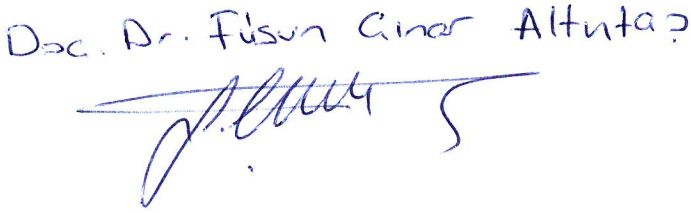 Doc. Dr. Füsun Çınar Altıntaş